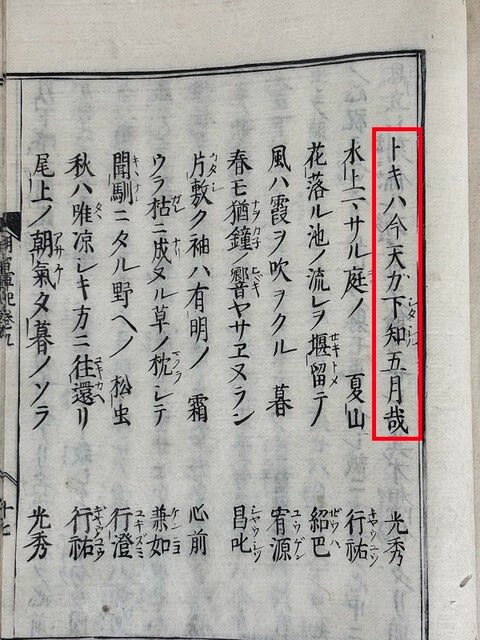 トキハ今天ガ下知五月哉 光秀
水上マサル庭ノ夏山 行祐
花落ル池ノ流レヲ堰留テ 紹巴
風ハ霞ヲ吹ヲクル暮 宥源
春モ猶鐘ノ響ヤサヱヌラン 昌叱
片敷ク袖ハ有明ノ霜 心前
ウラ枯ニ成ヌル草ノ枕シテ 兼如
聞馴ニタル野ヘノ松虫 行澄
秋ハ唯凉シキ方ニ往還リ 行祐
尾上ノ朝氣夕暮ノソラ 光秀
十七